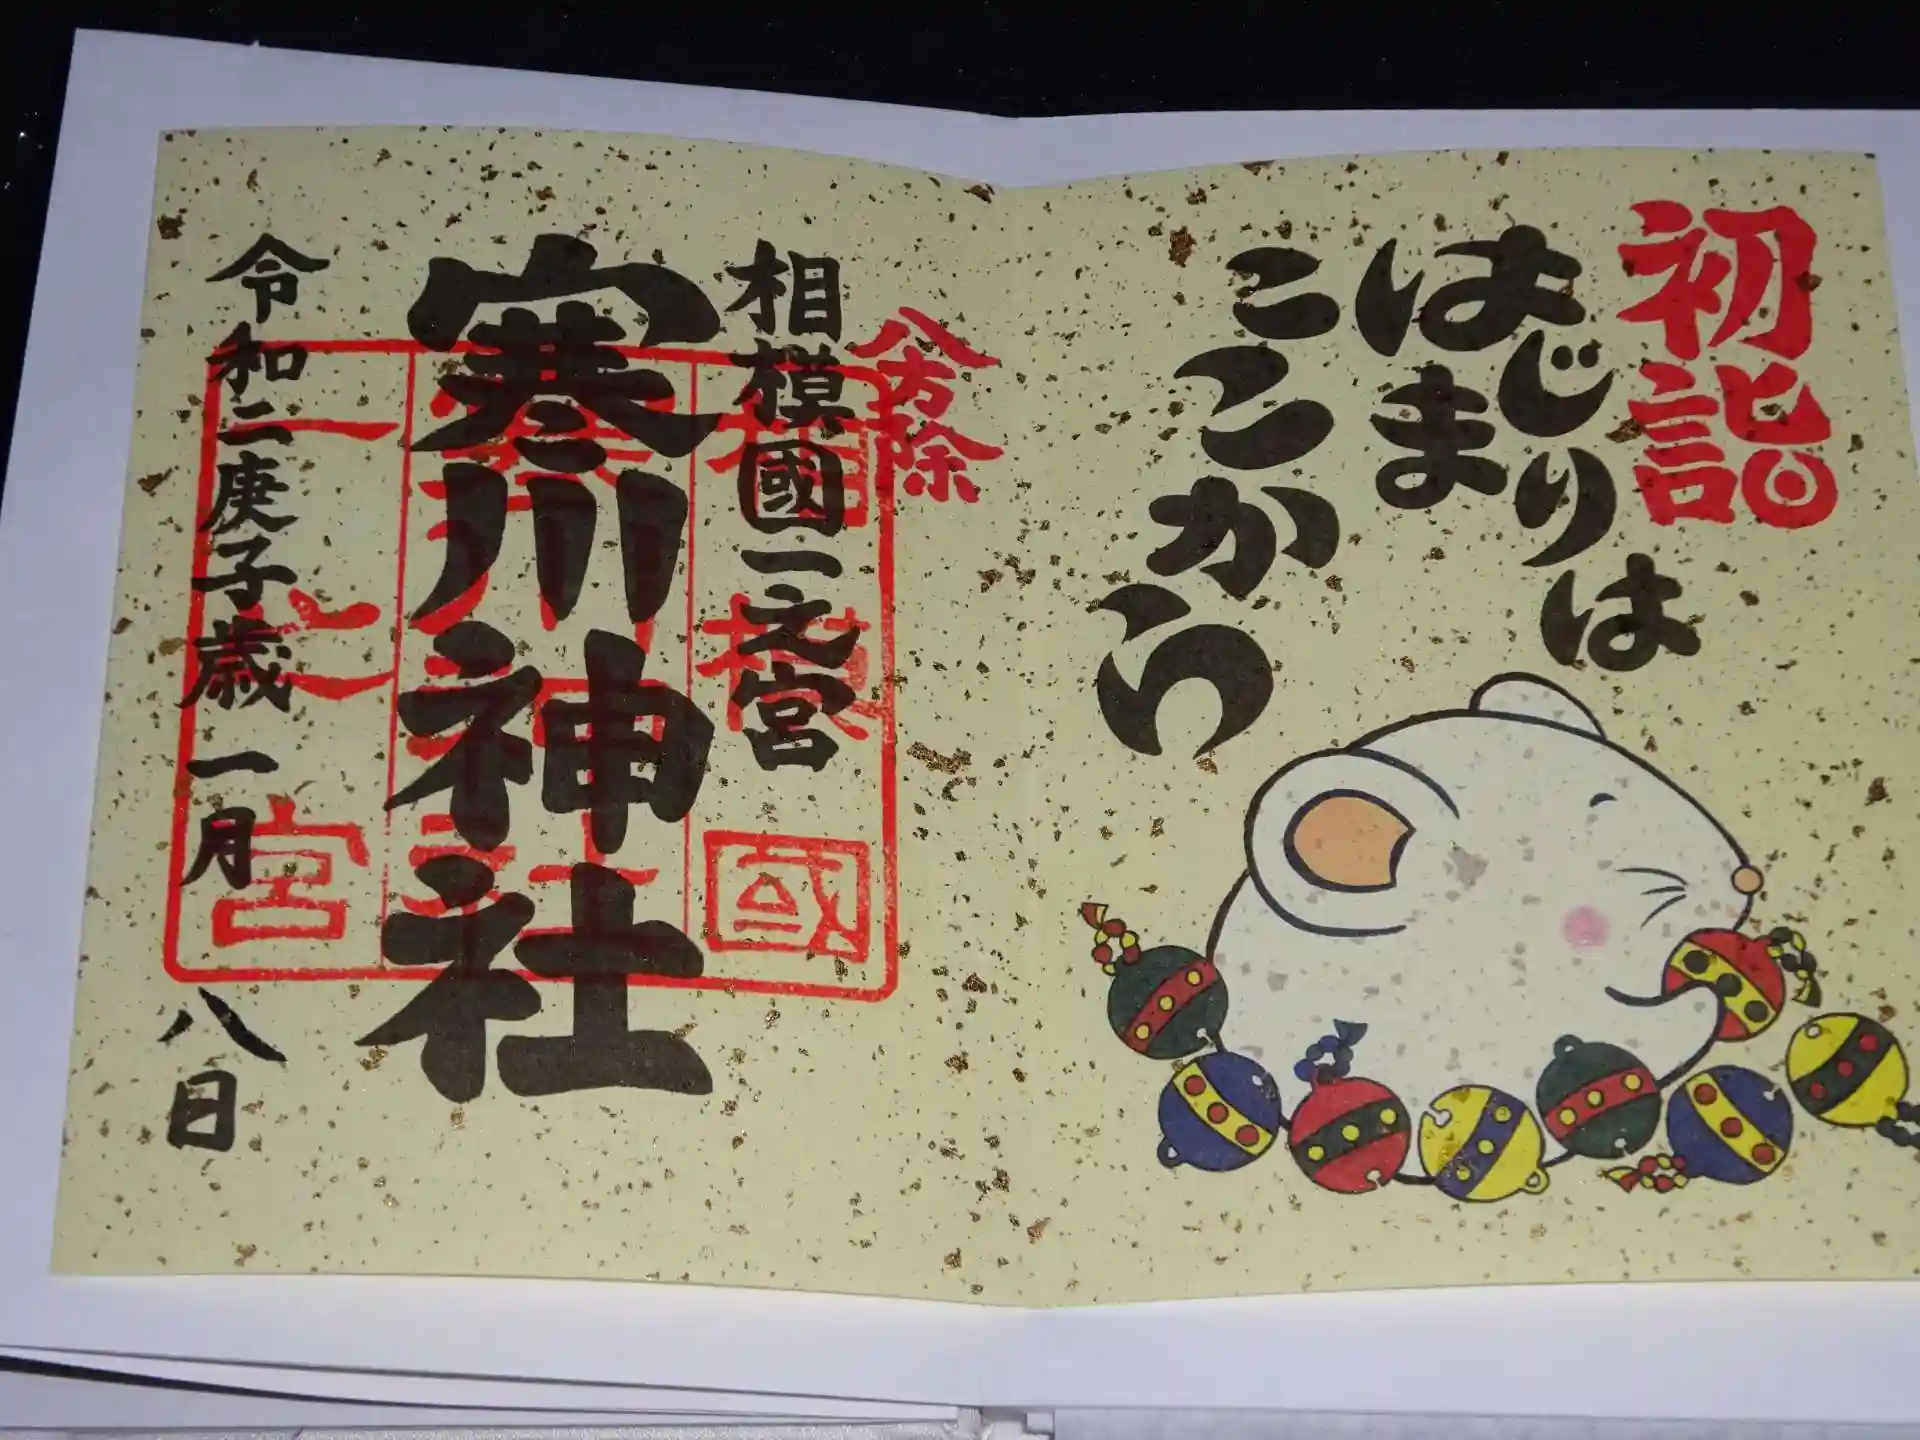 初詣
はじまりは
はま
ここから
八方除
相模國一之宮
寒川神社
令和二庚子歳 一月 八日
相模國
寒川神社
一之宮